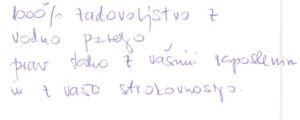 1000% zadovoljstvo z
vodno posteljo
prav tako z vašimi zaposlenim
in z vašo strokovnostjo.